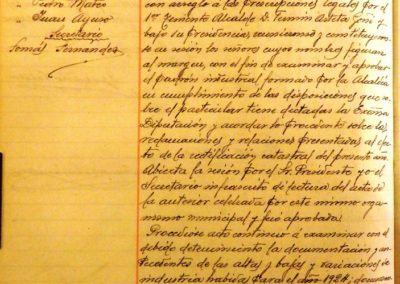 " Pedro Mateo
" Juan Ayuso
Secretario
Tomás Fernandez
con arreglo á las prescripciones legales por el
1er Teniente Alcalde D. Fermin Goñi y
bajo su Presidencia reunieronse y constituyeron
se en sesión los señores cuyos nombres figuran
al margen, con el fin de examinar y aprobar
el padrón industrial formado por la Alcaldía
en cumplimiento de las disposiciones que so
bre el particular tiene dictadas la Excma
Diputación y acordar lo procedente sobre las
reclamaciones y relaciones presentadas al efec
to de la rectificación catastral del presente año
Abierta la sesión por el Sr. Presidente yo el
Secretario infrascrito dí lectura del acta de
la anterior celebrada por este mismo orga-
nismo municipal y fué aprobada.
Procedióse acto continuo á examinar con el
debido detenimiento la documentación y an-
tecedentes de las altas y bajas y variaciones de
industria habidas para el año 1924;